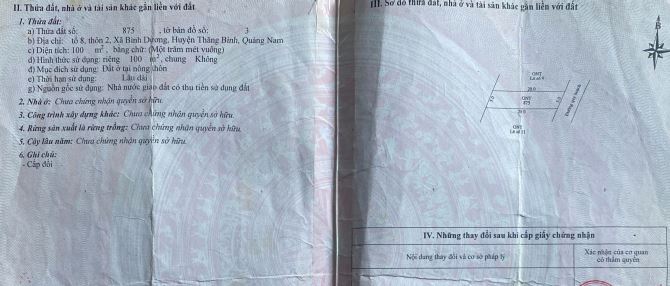 II. Thửa đất, nhà ở và tài sản khác gắn liền với đất
1. Thửa đất:
a) Thửa đất số: 875 , tờ bản đồ số: 3
b) Địa chỉ: tổ 8, thôn 2, Xã Bình Dương, Huyện Thăng Bình, Quảng Nam
c) Diện tích: 100 m², bằng chữ: (Một trăm mét vuông)
d) Hình thức sử dụng: riêng 100 m², chung Không
đ) Mục đích sử dụng: Đất ở tại nông thôn
e) Thời hạn sử dụng: Lâu dài
g) Nguồn gốc sử dụng: Nhà nước giao đất có thu tiền sử dụng đất
2. Nhà ở: Chưa chứng nhận quyền sở hữu
3. Công trình xây dựng khác: Chưa chứng nhận quyền sở hữu
4. Rừng sản xuất là rừng trồng: Chưa chứng nhận quyền sở hữu
5. Cây lâu năm: Chưa chứng nhận quyền sở hữu
6. Ghi chú:
- Cấp đổi
III. Sơ đồ thửa đất, nhà ở và tài sản khác gắn liền với đất
B
ONT
Lô số 9
20.0
ONT
875
5.0
5.0
20.0
ONT
Lô số 11
IV. Những thay đổi sau khi cấp giấy chứng nhận
Nội dung thay đổi và cơ sở pháp lý
Xác nhận của cơ quan
có thẩm quyền